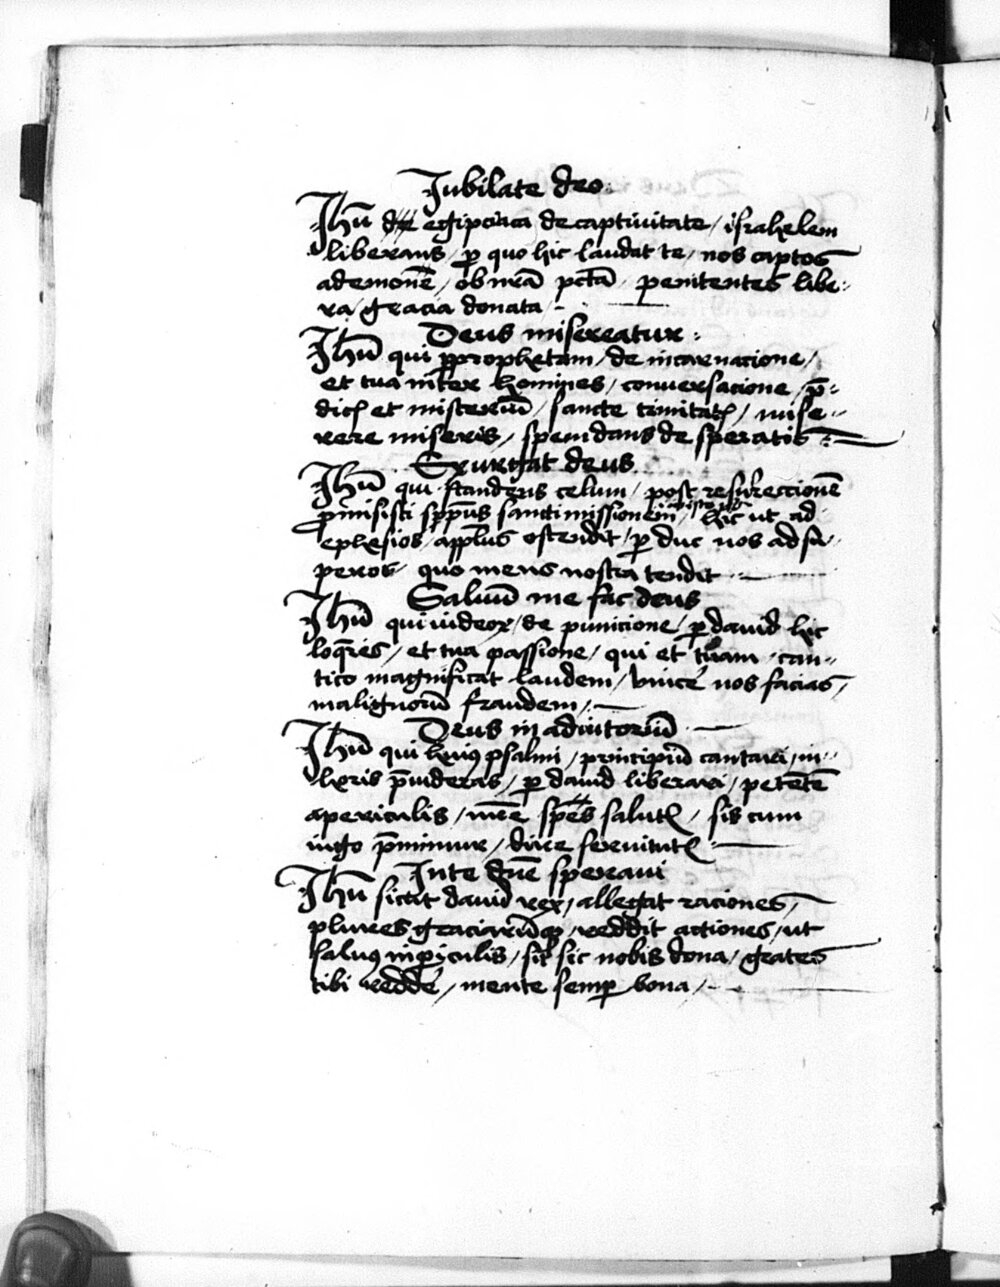 Jubilate deo
Jhũ egipciaca de captiuitate / israhelem
liberans / p quo hic laudat te / nos captos
a demonẽ / ob nr̃ã pctã / penitentes libe-
ra / gracia donata
Deus misereatur
Jhũ qui prophetam / de incarnacione /
et tua int̃er homines / conuersacione / p̃-
dicẜ et misteriũ / sancte trinitatẜ / mise-
rere miseris / spem dans desperatis
Exurgat deus
Jhũ qui ascenderis celum / post resureccionẽ
promisisti sanctimissionem / hic ut ad
ephesios / app̃lus ostendit / p duc nos ad su-
peros / quo mens nostra tendit
Saluũ me fac deus
Jhũ qui iudeoꝝ / de punicione / p dauid hic
loq̃ris / et tua passione / qui et tuam can-
tico magnificat laudem / vincẽ nos facias /
malignorũ fraudem /
Deus in adiutoriũ
Jhũ qui huiꝯ psalmi / principiũ cantari / in
horis p̃uideras / p dauid liberari / petẽtẽ
a periculis / spẽs salutẜ / sis cum
iugo p̃mimur / dire seruitutẜ
Jn te dñe speraui
Jhũ sicut dauid rex / allegat raciones /
plures graciarũqꝫ / reddit actiones / ut
saluꝯ in piculis / sit sic nobis dona / grates
tibi reddẽ / mente semp bona /